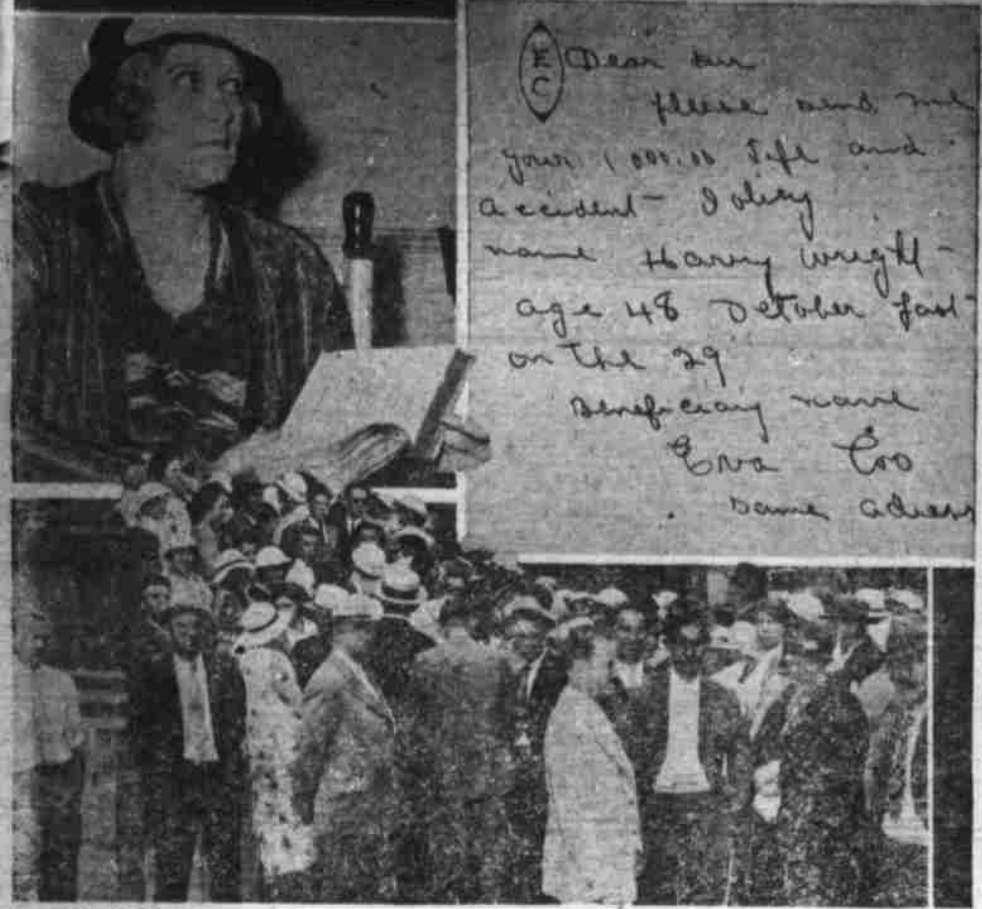 E C Dear Sir
please send me
your 1000.00 Life and
accident Policy
name Harry Wright
age 48 October last
on the 29
Beneficiary name
Eva Coo
same adress